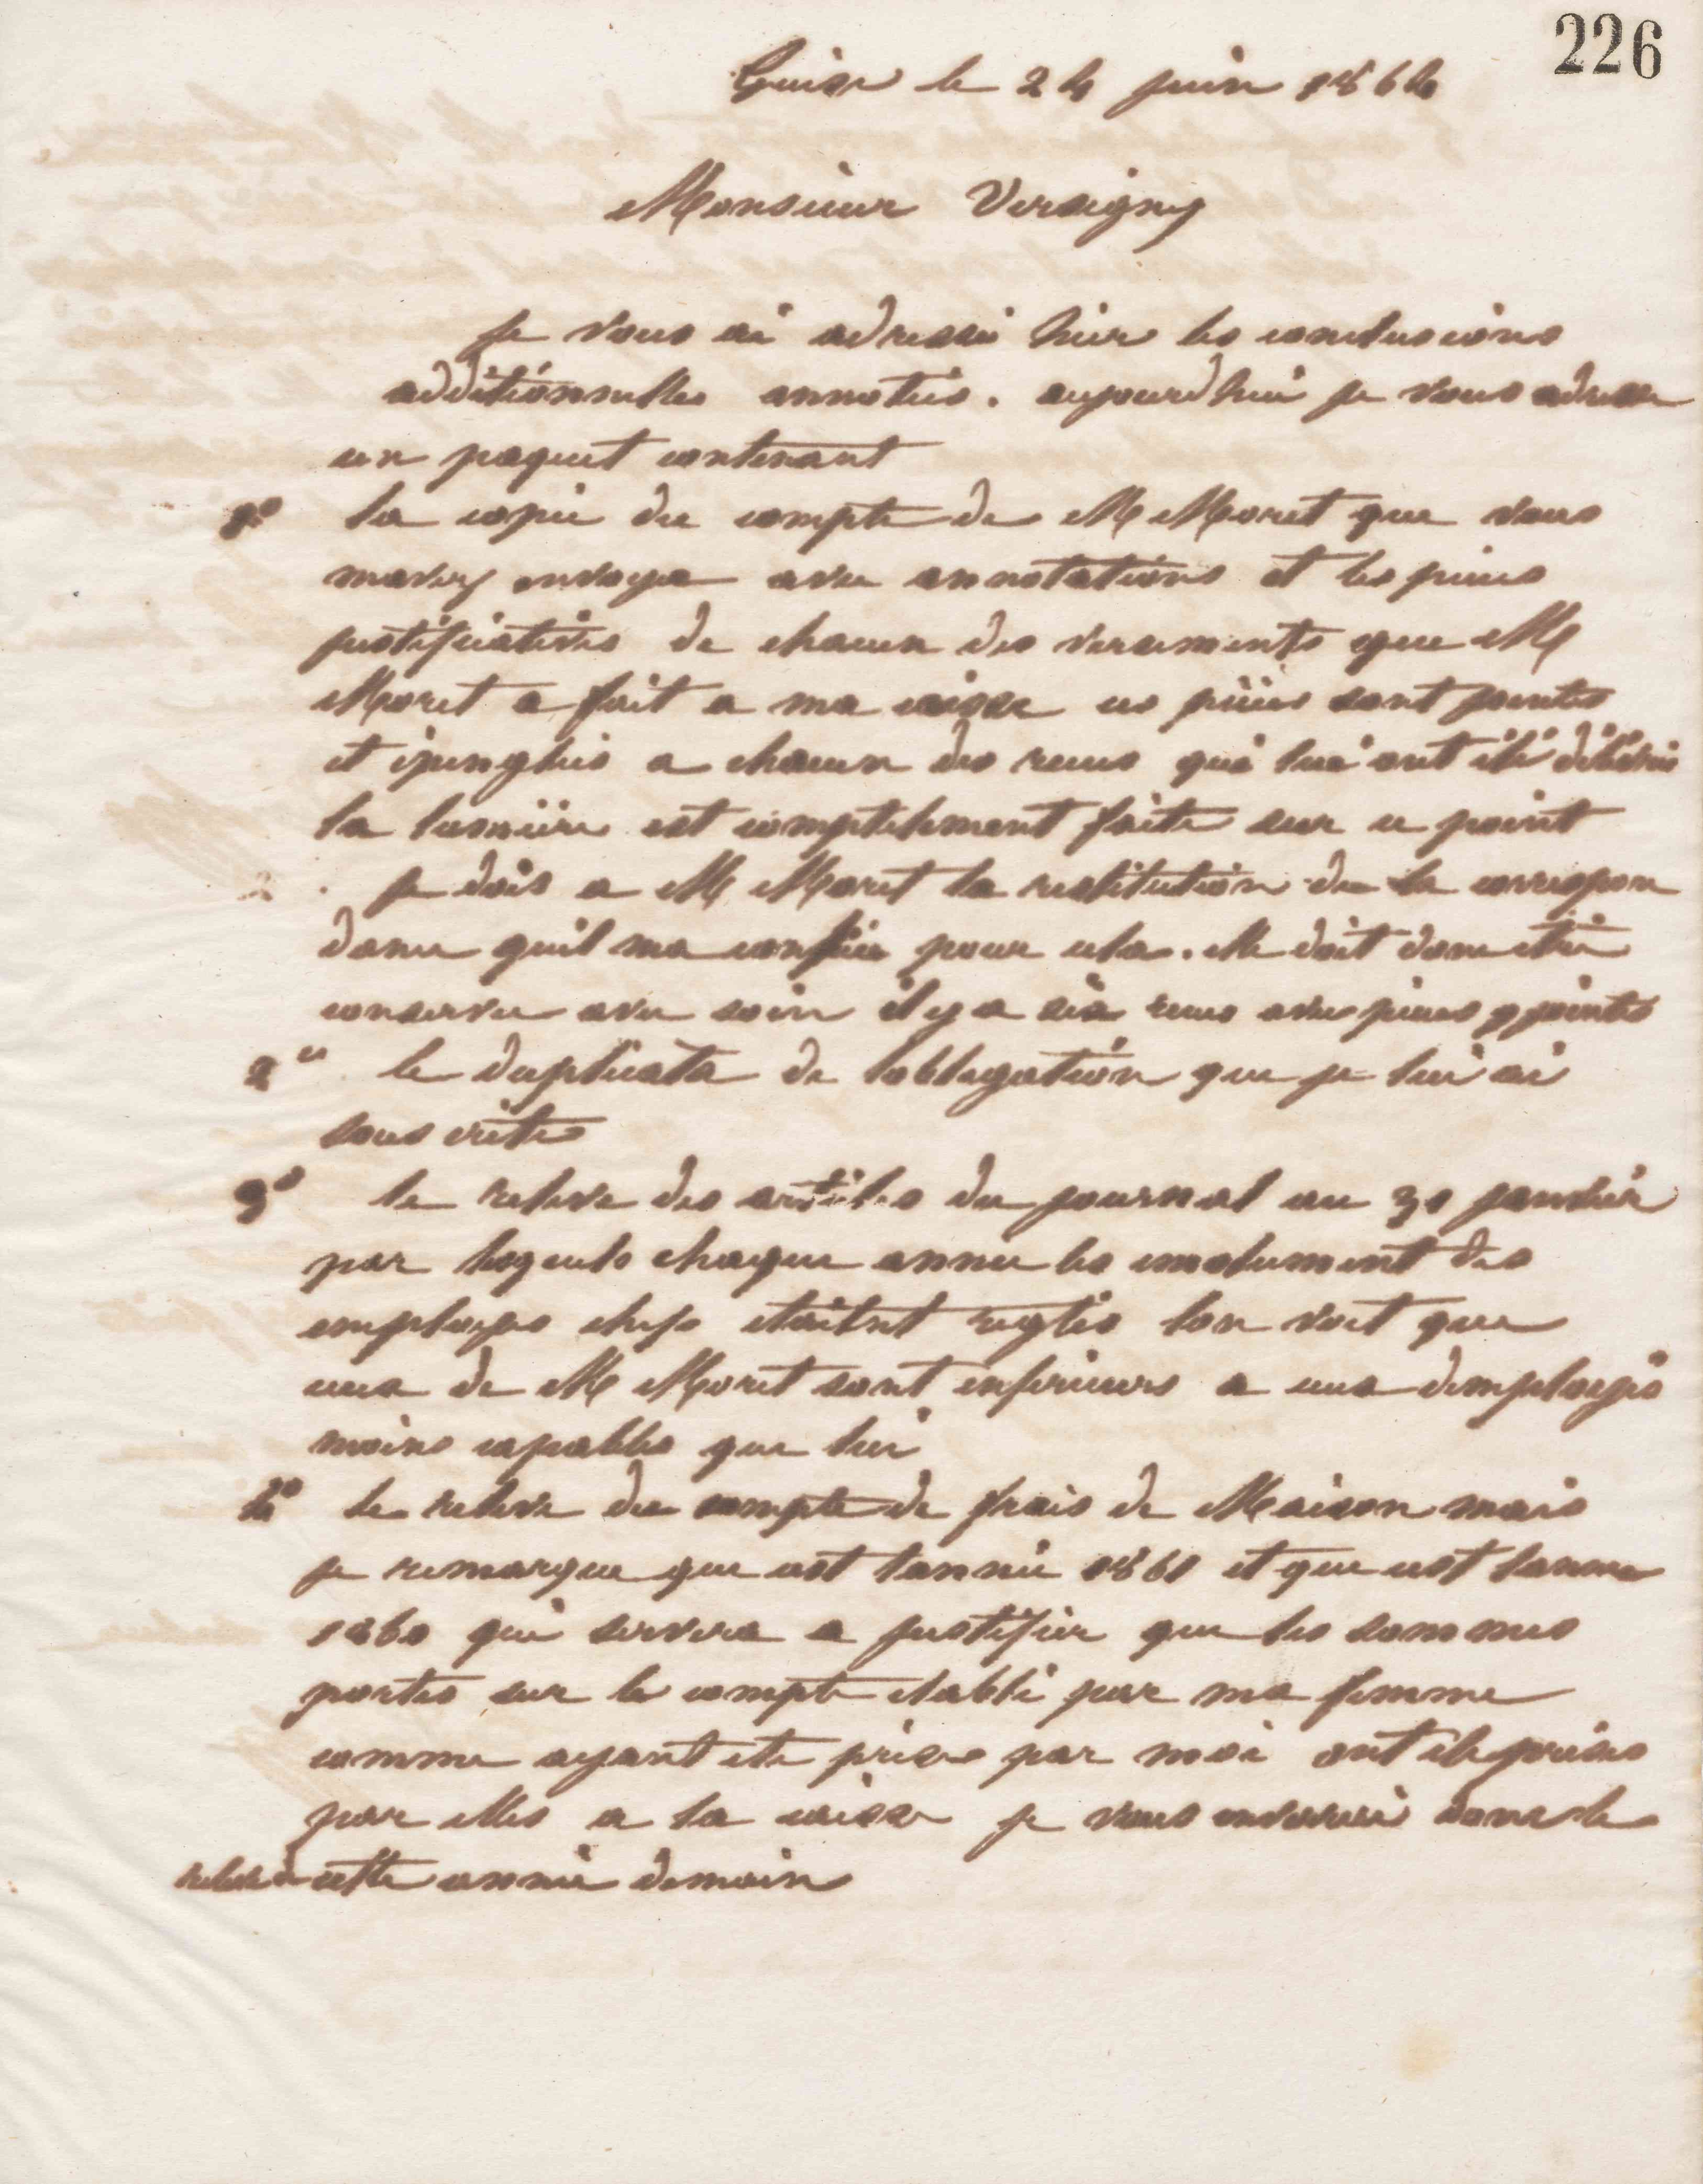 226
Guise le 24 juin 1864
Monsieur Versigny
je vous ai adressé hier les conclusions
additionnelles annotées. aujourdhui je vous adresse
un paquet contenant
1o la copie du compte de M Moret que vous
mavez envoye avec annotations et les pieces
justificatives de chacun des versements que M
Moret a fait a ma caisse ces pièces sont jointes
et épinglées a chacun des recus qui lui ont été délivrés
la lumière est complètement faite sur ce point
je dois a M Moret la restitution de la correspon
dance quil ma confiée pour cela. elle doit donc être
conservee avec soin il y a six recus avec pieces y jointes
2o le duplicata de lobligation que je lui ai
souscrite
3o le releve des articles du journal au 31 janvier
par lesquels chaque annee les emolument des
employes chefs étaient reglés lon voit que
ceux de M Moret sont inferieurs a ceux demployés
moins capables que lui
4o le releve du compte de frais de Maison mais
je remarque que cest lannée 1861 et que cest lannee
1860 qui servira a justifier que les sommes
portes sur le compte etabli par ma femme
comme ayant ete prises par moi ont ete prises
par elles a la caisse je vous enverrai donc le
relevé de cette année demain